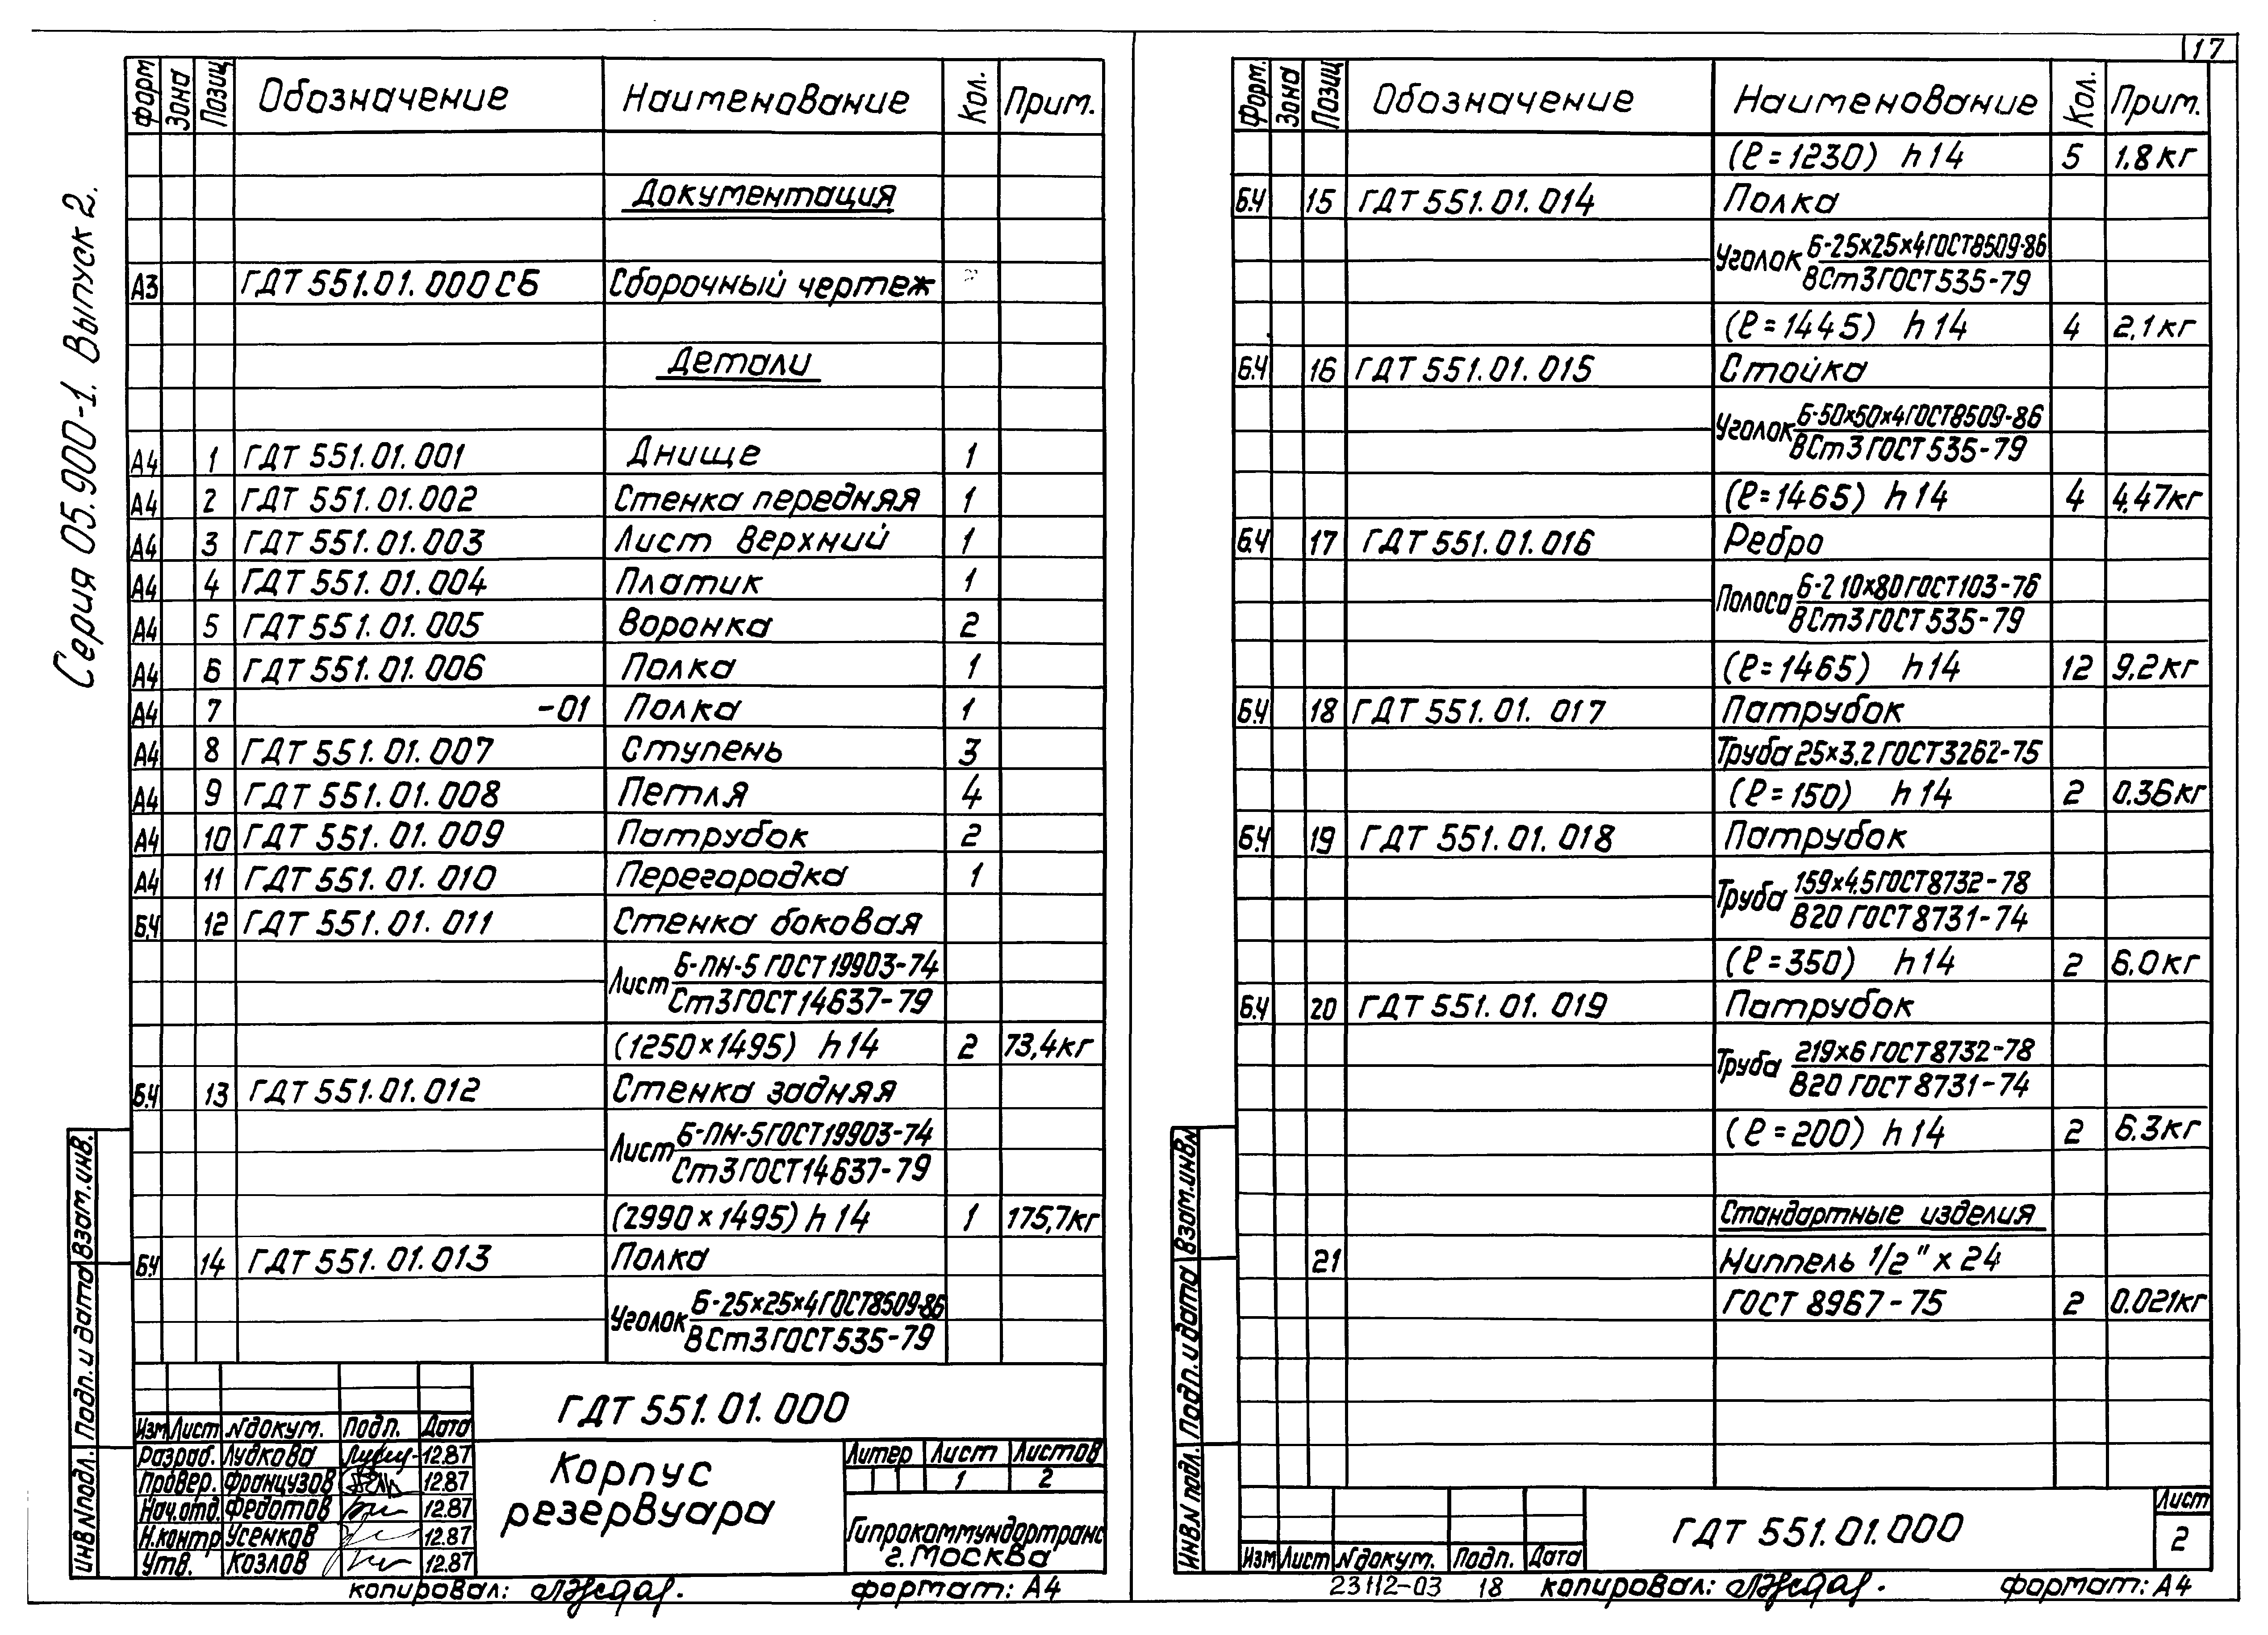 17
Серия 05.900-1. Выпуск 2.
Форм Зона Позиц Обозначение Наименование Кол. Прим.
Документация
А3 ГДТ 551.01.000 СБ Сборочный чертеж
Детали
А4 1 ГДТ 551.01.001 Днище 1
А4 2 ГДТ 551.01.002 Стенка передняя 1
А4 3 ГДТ 551.01.003 Лист верхний 1
А4 4 ГДТ 551.01.004 Платик 1
А4 5 ГДТ 551.01.005 Воронка 2
А4 6 ГДТ 551.01.006 Полка 1
А4 7 -01 Полка 1
А4 8 ГДТ 551.01.007 Ступень 3
А4 9 ГДТ 551.01.008 Петля 4
А4 10 ГДТ 551.01.009 Патрубок 2
А4 11 ГДТ 551.01.010 Перегородка 1
Б.Ч 12 ГДТ 551.01.011 Стенка боковая
Лист Б-ПН-5 ГОСТ 19903-74
Ст3 ГОСТ 14637-79
(1250×1495) h14 2 73,4кг
Б.Ч 13 ГДТ 551.01.012 Стенка задняя
Лист Б-ПН-5 ГОСТ 19903-74
Ст3 ГОСТ 14637-79
(2990×1495) h14 1 175,7кг
Б.Ч 14 ГДТ 551.01.013 Полка
Уголок Б-25×25×4 ГОСТ 8509-86
ВСт3 ГОСТ 535-79
ГДТ 551.01.000
Изм Лист №докум. Подп. Дата
Разраб. Лудкова 12.87
Провер. Французов 12.87
Нач.отд. Федотов 12.87
Н.контр Усенков 12.87
Утв. Козлов 12.87
Корпус
резервуара
Литер Лист Листов
1 2
Гипрокоммундортранс
г. Москва
Инв №подл. Подп. и дата Взам.инв.
копировал: формат: А4
Форм. Зона Позиц Обозначение Наименование Кол. Прим.
(ℓ=1230) h14 5 1.8кг
Б.Ч 15 ГДТ 551.01.014 Полка
Уголок Б-25×25×4 ГОСТ 8509-86
ВСт3 ГОСТ 535-79
(ℓ=1445) h14 4 2,1кг
Б.Ч 16 ГДТ 551.01.015 Стойка
Уголок Б-50×50×4 ГОСТ 8509-86
ВСт3 ГОСТ 535-79
(ℓ=1465) h14 4 4,47кг
Б.Ч 17 ГДТ 551.01.016 Ребро
Полоса Б-2 10×80 ГОСТ 103-76
ВСт3 ГОСТ 535-79
(ℓ=1465) h14 12 9,2кг
Б.Ч 18 ГДТ 551.01.017 Патрубок
Труба 25×3,2 ГОСТ 3262-75
(ℓ=150) h14 2 0.36кг
Б.Ч 19 ГДТ 551.01.018 Патрубок
Труба 159×4,5 ГОСТ 8732-78
В20 ГОСТ 8731-74
(ℓ=350) h14 2 6.0кг
Б.Ч 20 ГДТ 551.01.019 Патрубок
Труба 219×6 ГОСТ 8732-78
В20 ГОСТ 8731-74
(ℓ=200) h14 2 6.3кг
Стандартные изделия
21 Ниппель 1/2"×24
ГОСТ 8967-75 2 0.021кг
Изм Лист №докум. Подп. Дата
ГДТ 551.01.000
Лист
2
Инв.№ подл. Подп. и дата Взам.инв№
23112-03 18 копировал: формат: А4